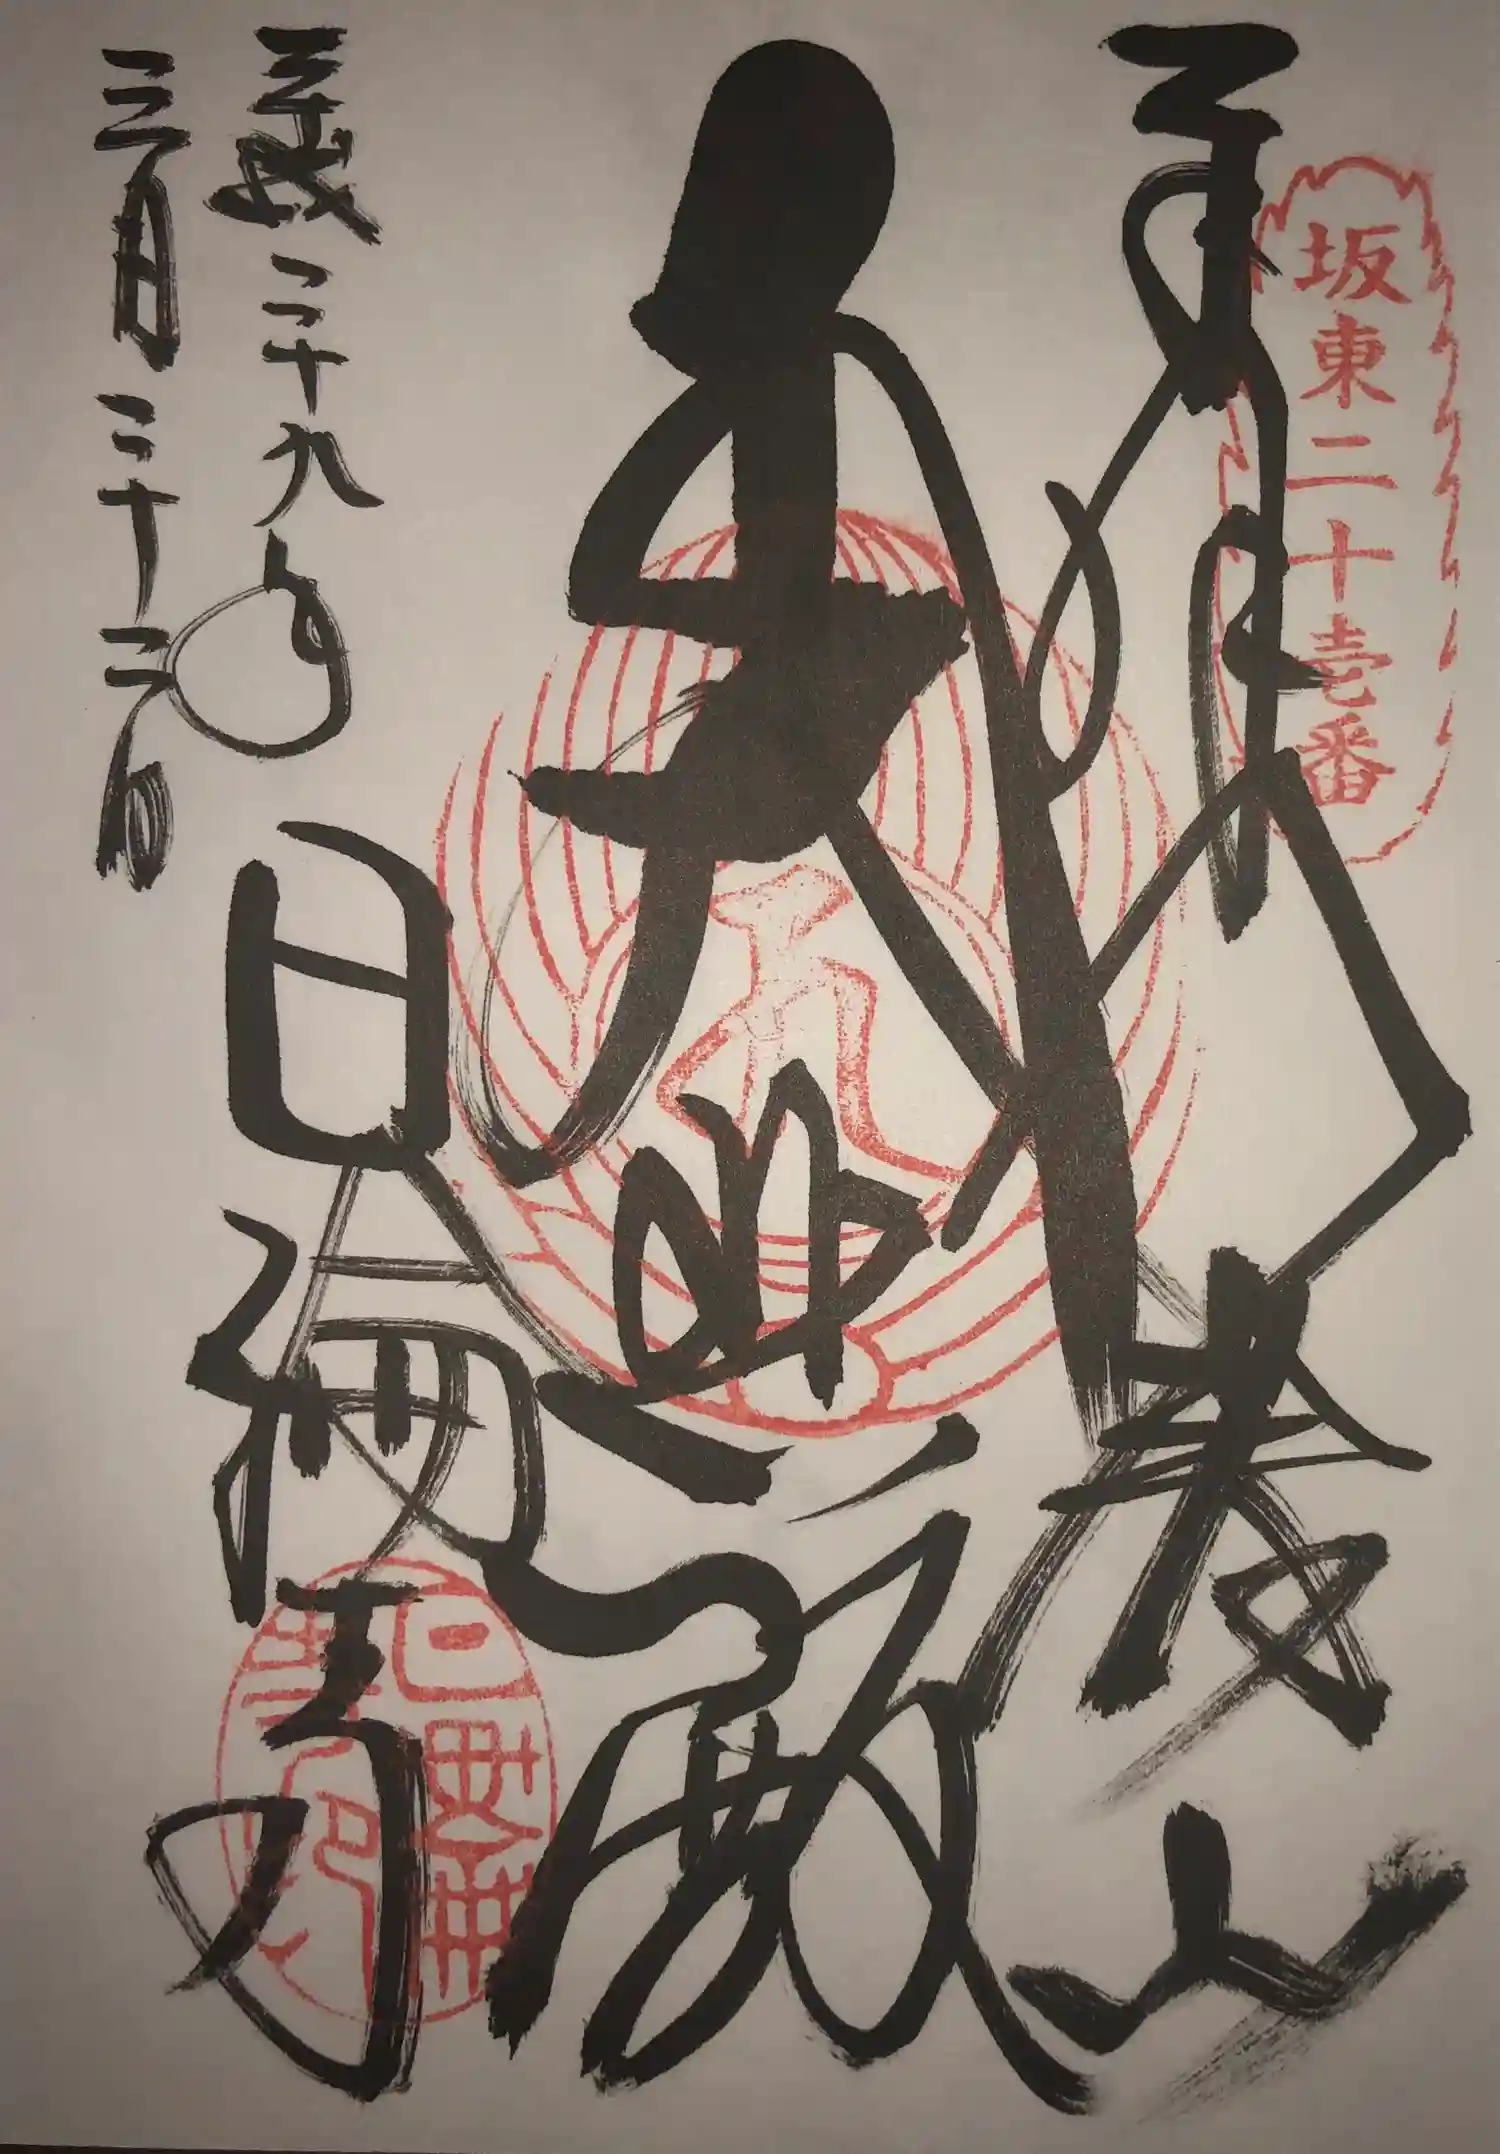 坂東二十壱番
奉拝 八溝山
大悲殿
日輪寺
平成二十九年
三月二十二日